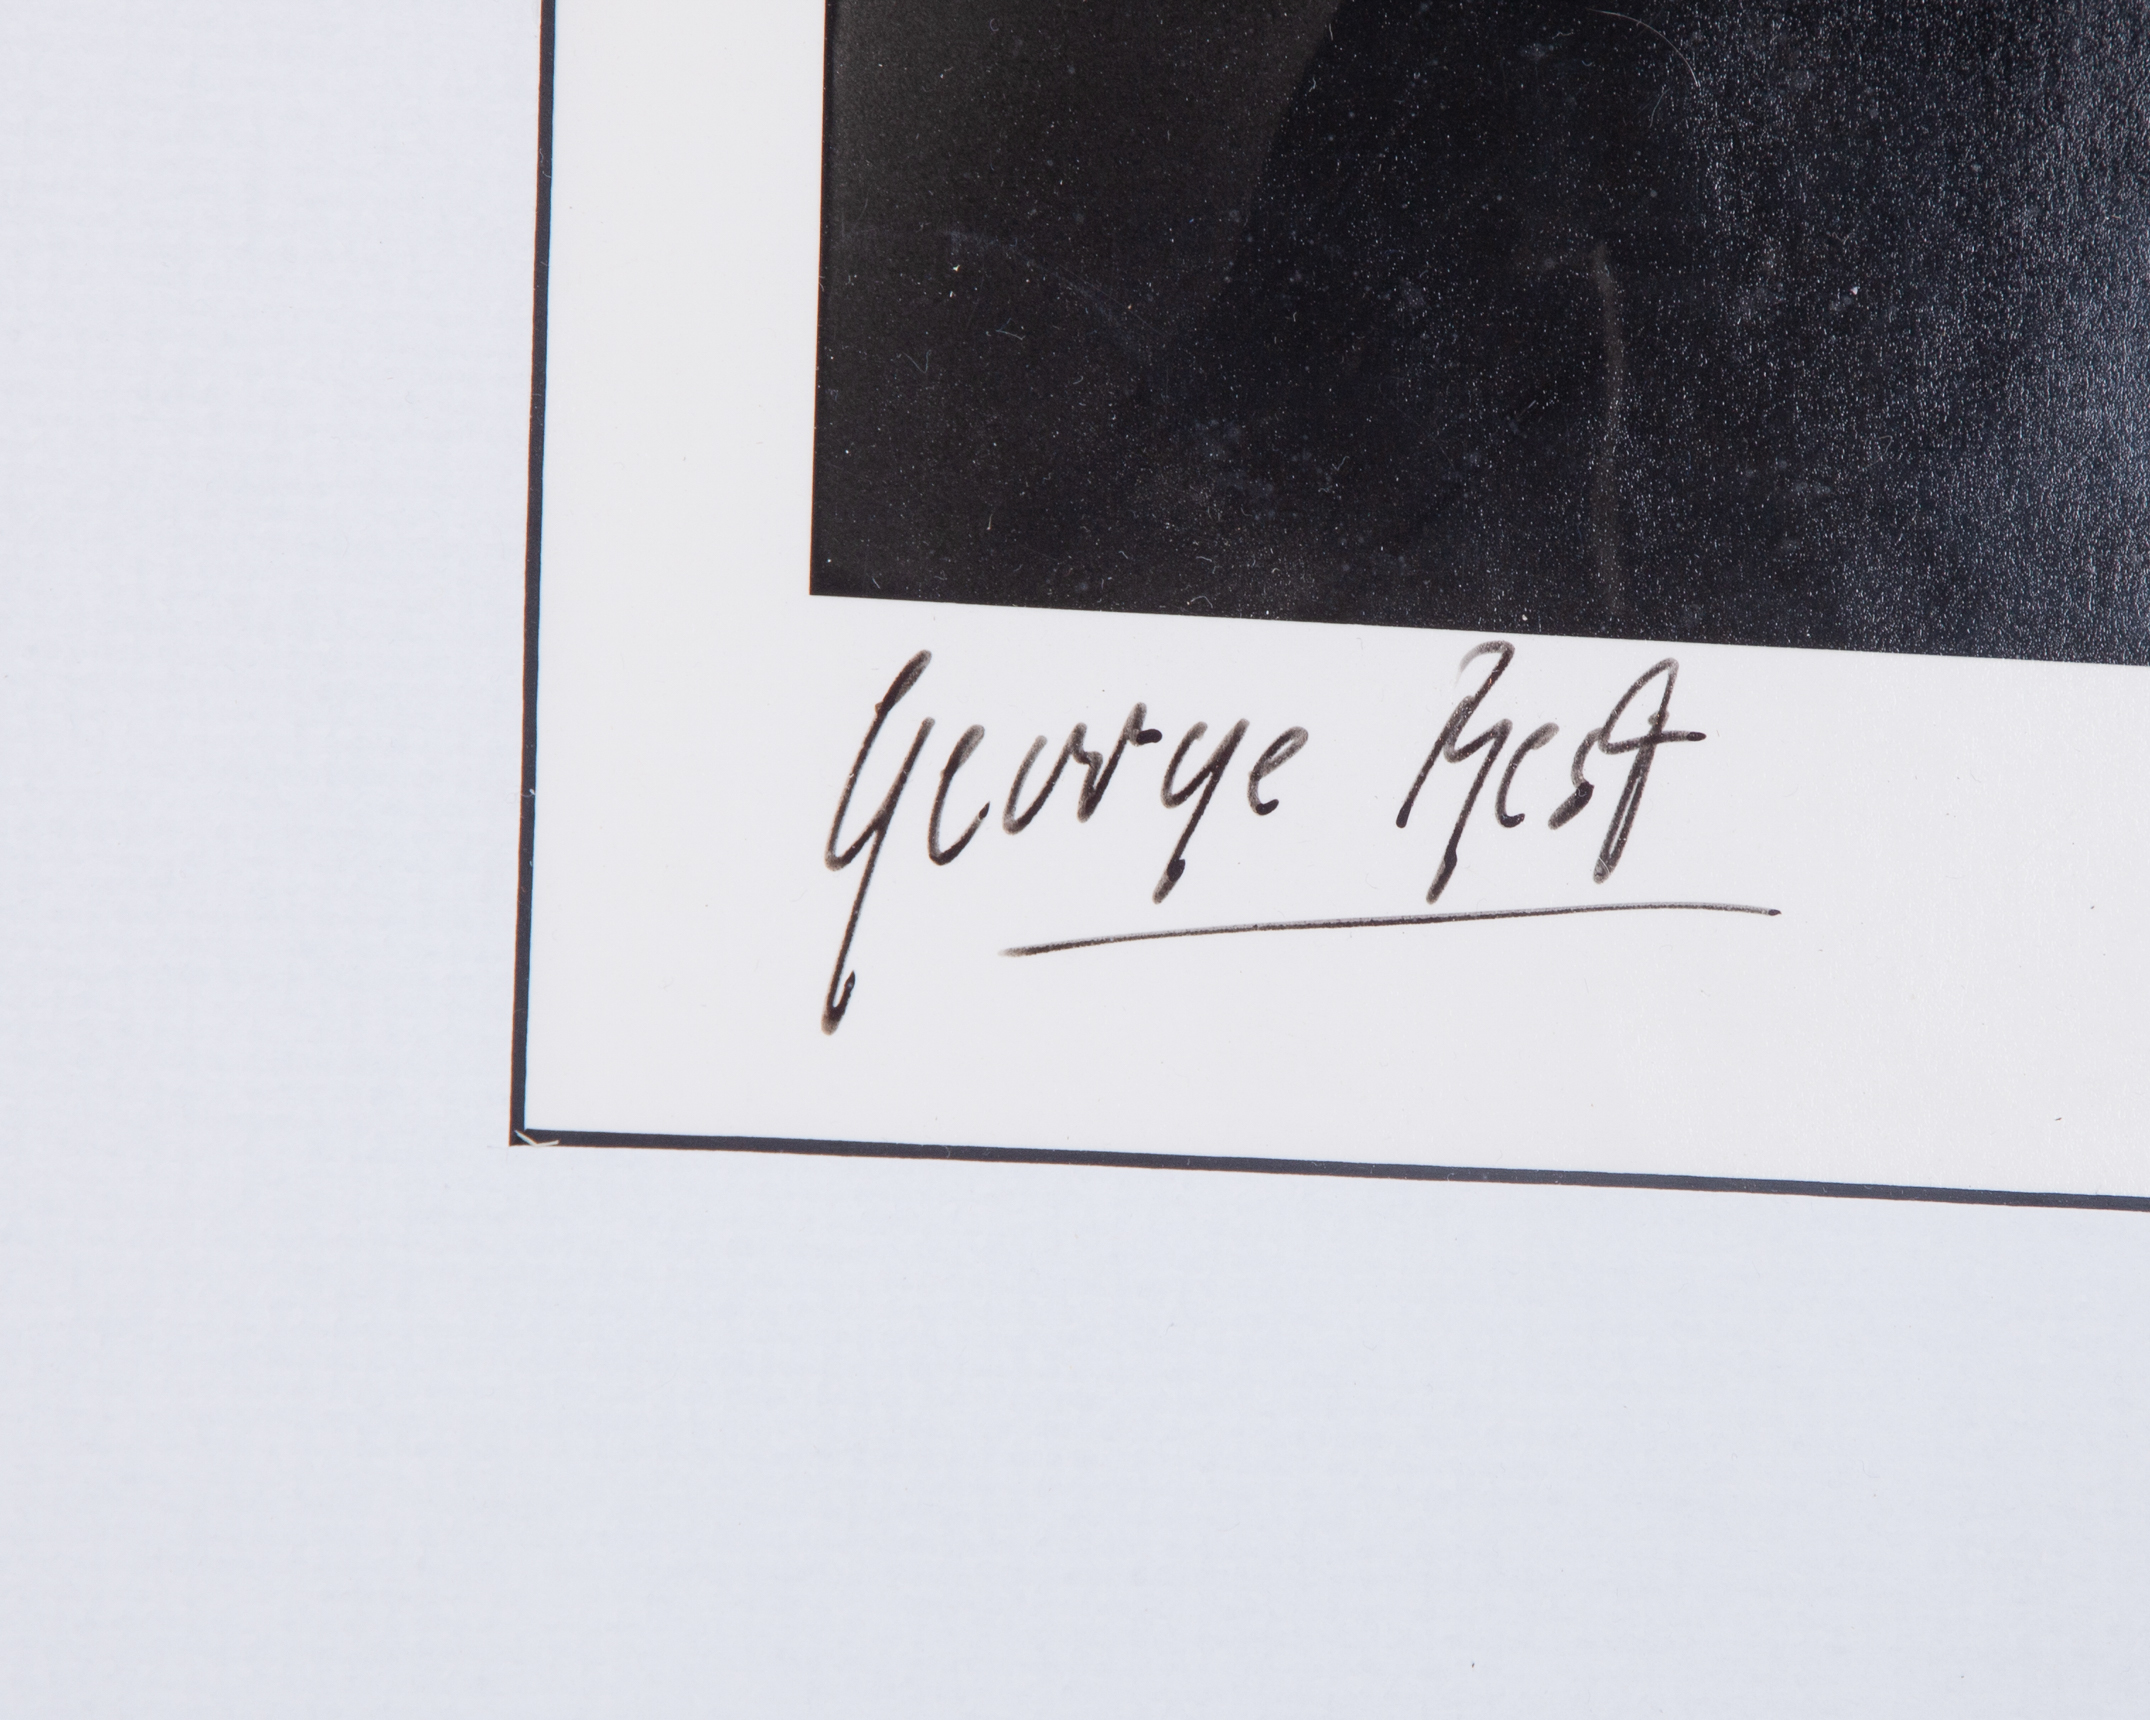 George Best